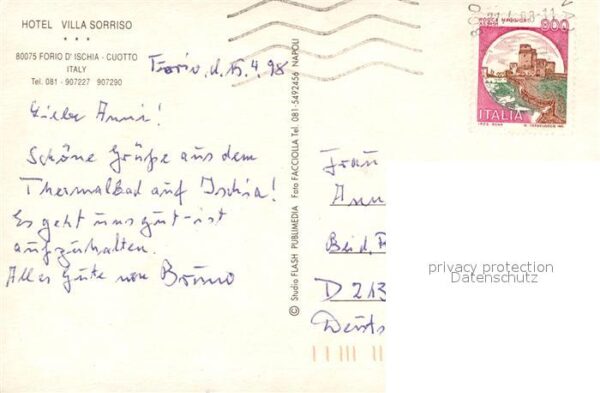 HOTEL VILLA SORRISO
★ ★ ★
80075 FORIO D' ISCHIA - CUOTTO
ITALY
Tel. 081 - 907227 907290
Forio, d. 15.4.98
Liebe Anni!
Schöne Grüße aus dem
Thermalbad auf Ischia!
Es geht uns gut - ist
aufzuhalten.
Alles Gute von Bruno
© Studio FLASH PUBLIMEDIA Foto FACCIOLLA Tel. 081-5492456 NAPOLI
ROCCA MAGGIORE
ASSISI
900
ITALIA
Frau
Ann
Bei d.
D 213
Deuts
privacy protection
Datenschutz